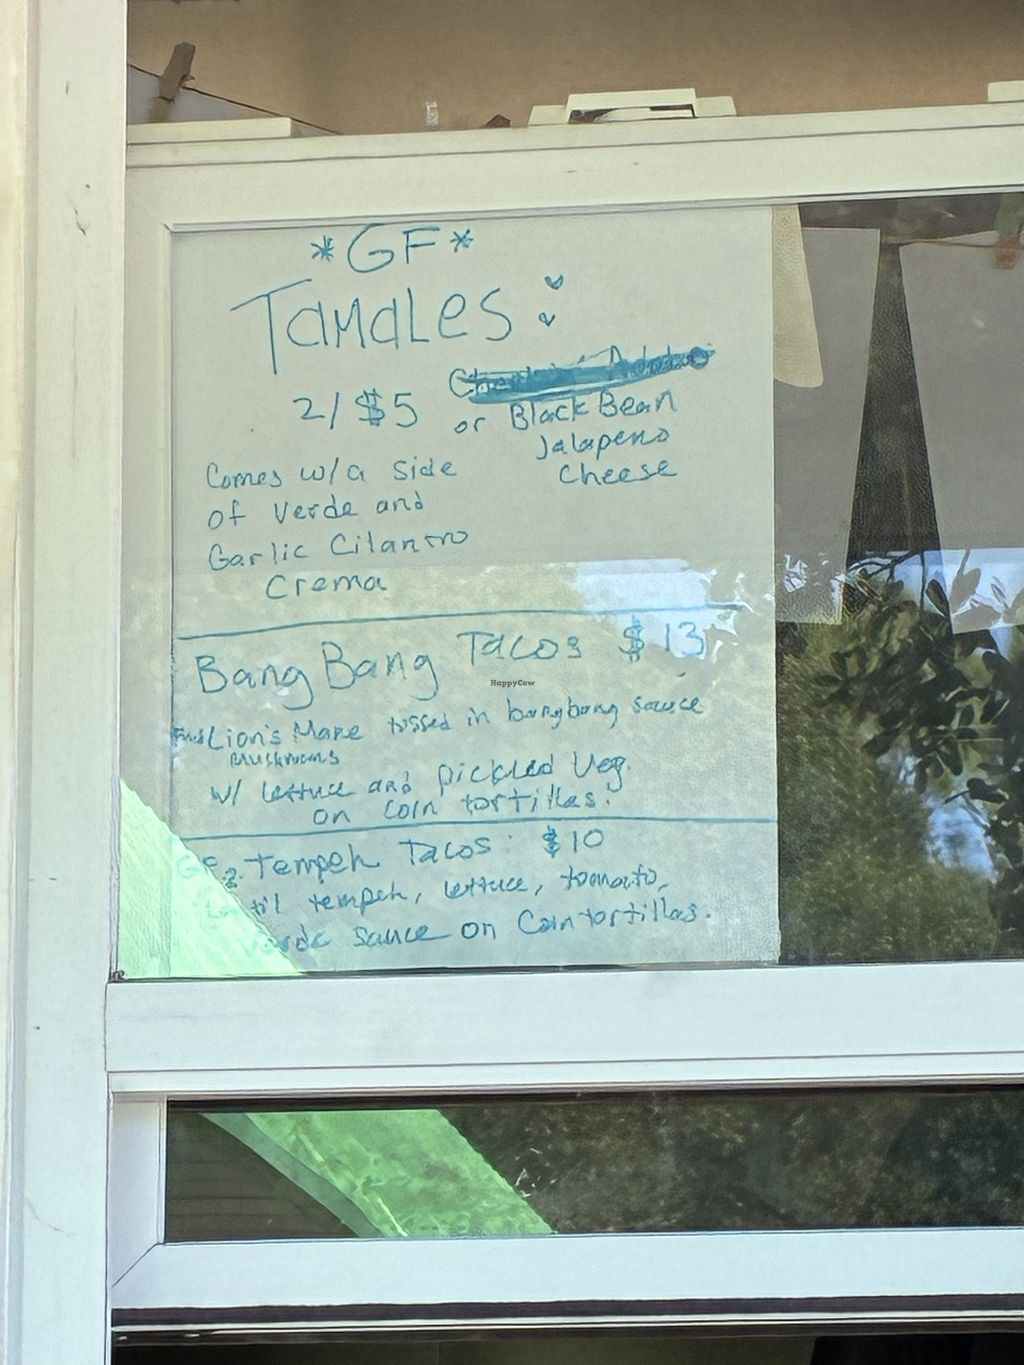 *GF*
Tamales
2/$5 or Black Bean
Jalapeno
Cheese
Comes w/a side
of Verde and
Garlic Cilantro
Crema
Bang Bang Tacos $13
HappyCow
Lion's Mane tossed in bangbang sauce
Mushrooms
w/ lettuce and pickled veg.
on corn tortillas.
GF Tempeh Tacos: $10
tempeh, lettuce, tomato,
sauce on Corn tortillas.